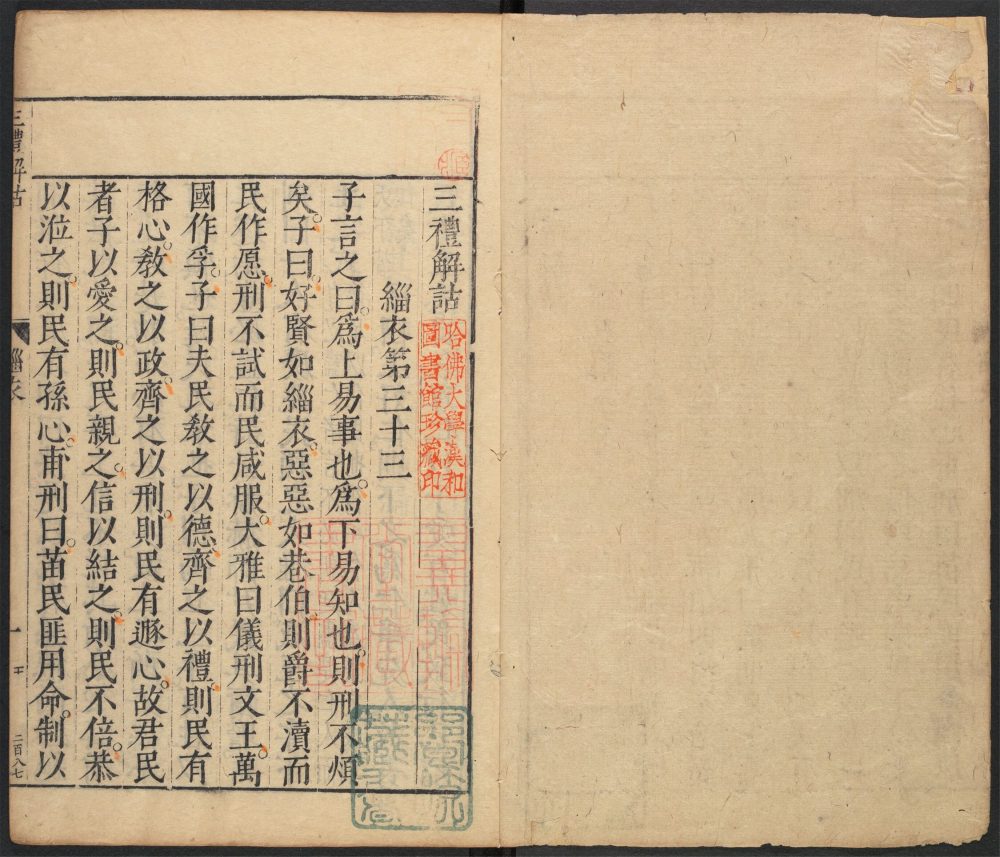 三禮解詁
哈佛大學漢和
圖書館珍藏印
緇衣第三十三
子言之曰爲上易事也爲下易知也則刑不煩
矣子曰好賢如緇衣惡惡如巷伯則爵不瀆而
民作愿刑不試而民咸服大雅曰儀刑文王萬
國作孚子曰夫民敎之以德齊之以禮則民有
格心敎之以政齊之以刑則民有遯心故君民
者子以愛之則民親之信以結之則民不倍恭
以涖之則民有孫心甫刑曰苗民匪用命制以
三禮解詁
緇衣
一
二百八七